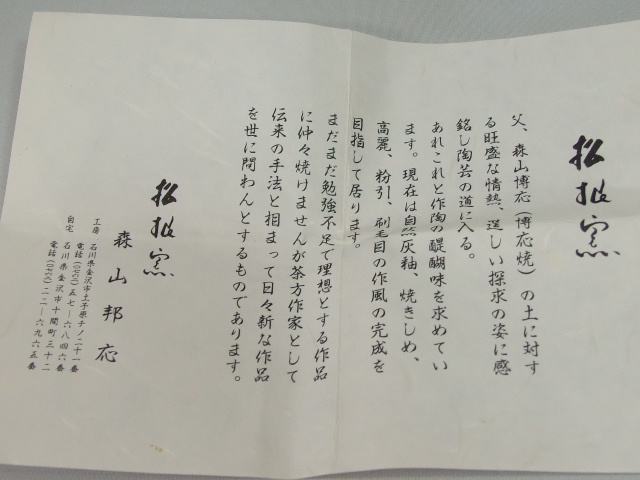 父、森山博応(博応焼)の土に対す
る旺盛な情熱、逞しい探求の姿に感
銘し陶芸の道に入る。
あれこれと作陶の醍醐味を求めてい
ます。現在は自然灰釉、焼きしめ、
高麗、粉引、刷毛目の作風の完成を
目指して居ります。
まだまだ勉強不足で理想とする作品
に仲々焼けませんが茶方作家として
伝来の手法と相まって日々新な作品
を世に問わんとするものであります。
森山邦応
工房 石川県金沢市土子原チノ二十一番
自宅 石川県金沢市十間町三十二